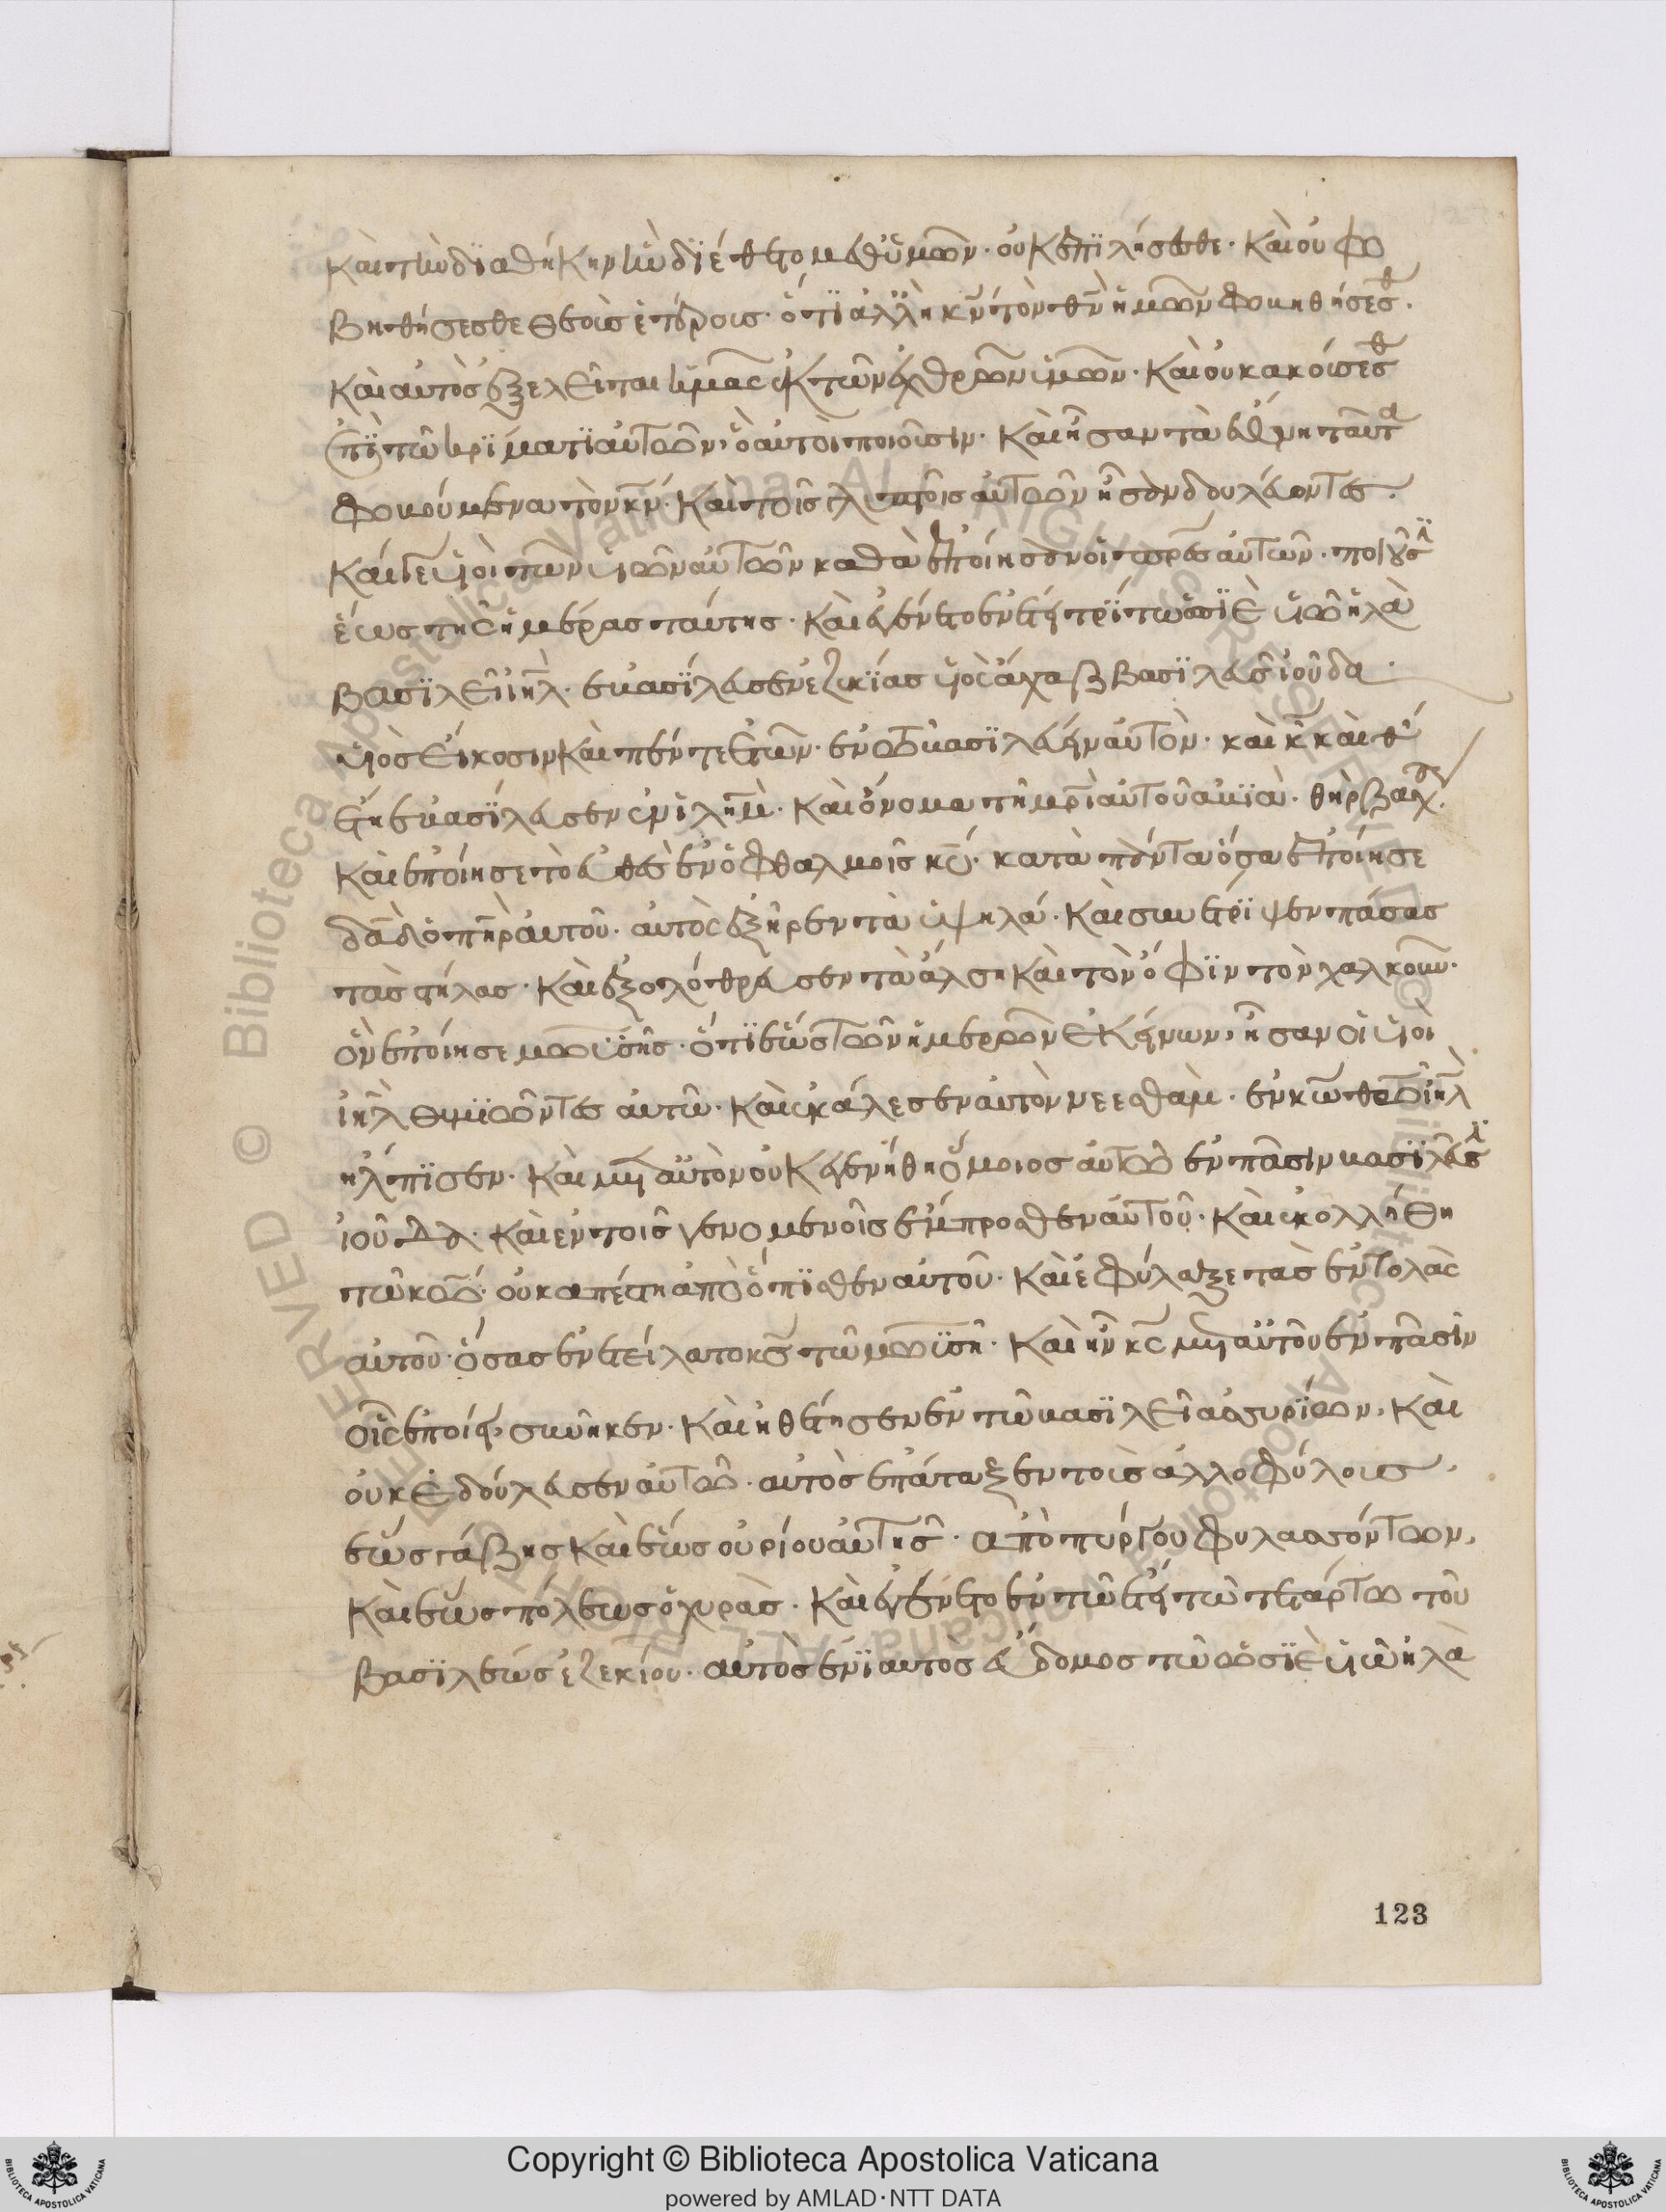 καὶ τὴν διαθήκην ἣν διέθετο μεθ' ὑμῶν· οὐκ ἐπιλήσεσθε· καὶ οὐ φο
βηθήσεσθε θεοὺς ἑτέρους· ὅτι ἀλλ' ἢ κ̅ν̅ τὸν θ̅ν̅ ἡμῶν φοβηθήσεσθ·
καὶ αὐτὸς ἐξελεῖται ὑμᾶς ἐκ τῶν ἐχθρῶν ὑμῶν· καὶ οὐκ ἀκούσεσθ
ἐπὶ τῶ κρίματι αὐτῶν, ὃ αὐτοὶ ποιοῦσιν· καὶ ἦσαν τὰ ἔθνη ταῦτα
φοβούμενα τὸν κ̅ν̅· καὶ τοῖς γλυπτοῖς αὐτῶν ἦσαν δουλεύοντες·
καί γε υἱοὶ τῶν υἱῶν αὐτῶν καθὰ ἐποίησαν οἱ π̅ρ̅ε̅ς αὐτῶν· ποιοῦσι
ἕως τῆς ἡμέρας ταύτης· καὶ ἐγένετο ἐν ἔτει τρίτω τῶ ὡσιὲ υἱῶ ἠλὰ
βασιλεῖ ι̅η̅λ̅· ἐβασίλευσεν ἐζεκίας υἱὸς ἄχαζ βασιλέως ἰούδα·
υἱὸς εἴκοσιν καὶ πέντε ἐτῶν· ἐν τῶ βασιλεύειν αὐτὸν· καὶ κ̅ καὶ θ̅
ἔτη ἐβασίλευσεν ἐν ι̅λ̅η̅μ̅· καὶ ὄνομα τῆ μ̅ρ̅ι̅ αὐτοῦ ἀβιὰ· θ̅η̅ρ̅ ζαχ
καὶ ἐποίησε τὸ εὐθὲς ἐν ὀφθαλμοῖς κ̅υ̅· κατὰ πάντα ὅσα ἐποίησε
δ̅α̅δ̅ ὁ π̅η̅ρ̅ αὐτοῦ· αὐτὸς ἐξῆρεν τὰ ὑψηλά· καὶ συνέτριψεν πάσας
τὰς στήλας· καὶ ἐξολόθρευσεν τὰ ἄλση καὶ τὸν ὄφιν τὸν χαλκοῦν·
ὃν ἐποίησε μωϋσῆς· ὅτι ἕως τῶν ἡμερῶν ἐκείνων, ἦσαν οἱ υἱοὶ
ι̅η̅λ̅ θυμιῶντες αὐτῶ· καὶ ἐκάλεσεν αὐτὸν νεεσθαμ· ἐν κ̅ω̅ θ̅ω̅ ι̅η̅λ̅
ἤλπισεν· καὶ μετ' αὐτὸν οὐκ ἐγενήθη ὅμοιος αὐτῶ ἐν πᾶσιν βασιλεῦσι
ἰούδα· καὶ ἐν τοῖς γενομένοις ἔμπροσθεν αὐτοῦ· καὶ ἐκολλήθη
τῶ κ̅ω̅· οὐκ ἀπέστη ἀπὸ ὄπισθεν αὐτοῦ· καὶ ἐφύλαξε τὰς ἐντολὰς
αὐτοῦ· ὅσας ἐνετείλατο κ̅ς̅ τῶ μωϋσῆ· καὶ ἦν κ̅ς̅ μετ' αὐτοῦ ἐν πᾶσιν
οἷς ἐποίει, συνῆκεν· καὶ ἠθέτησεν ἐν τῶ βασιλεῖ ἀσσυρίων, καὶ
οὐκ ἐδούλευσεν αὐτῶ· αὐτὸς ἐπάταξεν τοὺς ἀλλοφύλους
ἕως γάζης καὶ ἕως ὁρίου αὐτῆς· ἀπὸ πύργου φυλασσόντων,
καὶ ἕως πόλεως ὀχυρᾶς· καὶ ἐγένετο ἐν τῶ ἔτει τῶ τετάρτω τοῦ
βασιλέως ἐζεκίου· αὐτὸς ἐνιαυτὸς ἕβδομος τῶ ὡσιὲ υἱῶ ἠλὰ
123
Copyright © Biblioteca Apostolica Vaticana
powered by AMLAD·NTT DATA